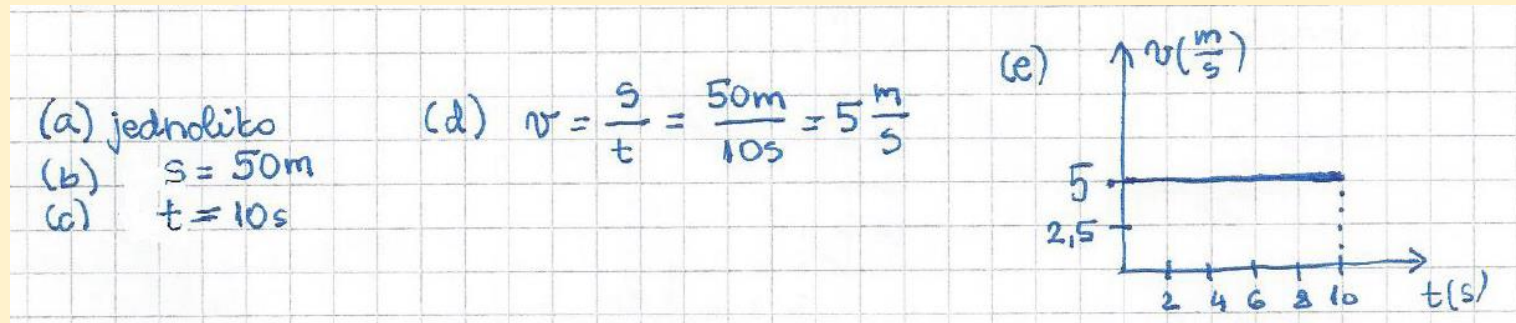 (a) jednoliko
(b) s = 50m
(c) t = 10s
(d) v = s/t = 50m/10s = 5 m/s
(e) v(m/s)
5
2,5
2 4 6 8 10 t(s)